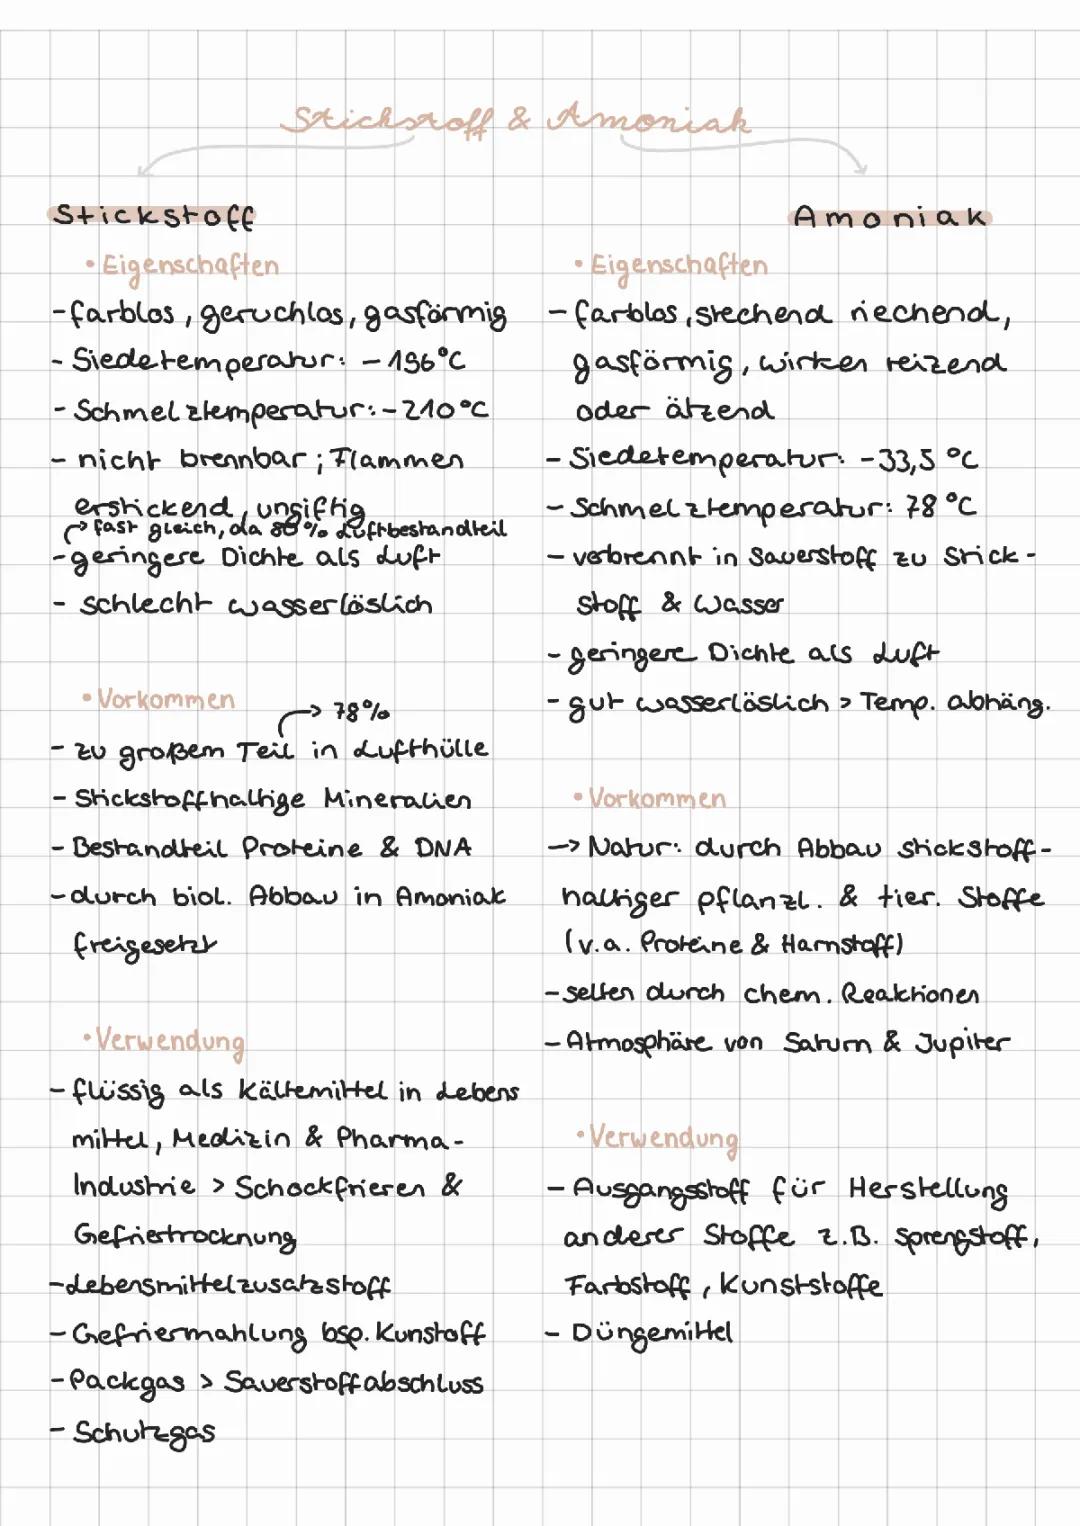 Stickstoff & Amoniak
Stickstoff
• Eigenschaften
- farblos, geruchlos, gasförmig
- Siedetemperatur: -196°C
- Schmelztemperatur: -210°C
- nicht brennbar; Flammen
erstickend, ungiftig
→ fast gleich, da 80% Luftbestandteil
- geringere Dichte als Luft
- schlecht wasserlöslich
• Vorkommen
→ 78%
- zu großem Teil in Lufthülle
- Stickstoffhaltige Mineralien
- Bestandteil Proteine & DNA
- durch biol. Abbau in Amoniak
freigesetzt
• Verwendung
- flüssig als Kältemittel in Lebens
mittel, Medizin & Pharma-
Industrie > Schockfrieren &
Gefriertrocknung
- Lebensmittelzusatzstoff
- Gefriermahlung bsp. Kunstoff
- Packgas > Sauerstoffabschluss
- Schutzgas
Amoniak
• Eigenschaften
- farblos, stechend riechend,
gasförmig, wirken reizend
oder ätzend
- Siedetemperatur: -33,5 °C
- Schmelztemperatur: 78 °C
- verbrennt in Sauerstoff zu Stick-
stoff & Wasser
- geringere Dichte als Luft
- gut wasserlöslich > Temp. abhäng.
• Vorkommen
→ Natur: durch Abbau stickstoff-
haltiger pflanzl. & tier. Stoffe
(v.a. Proteine & Harnstoff)
- selten durch chem. Reaktionen
- Atmosphäre von Saturn & Jupiter
• Verwendung
- Ausgangsstoff für Herstellung
anderer Stoffe z.B. Sprengstoff,
Farbstoff, Kunststoffe
- Düngemittel